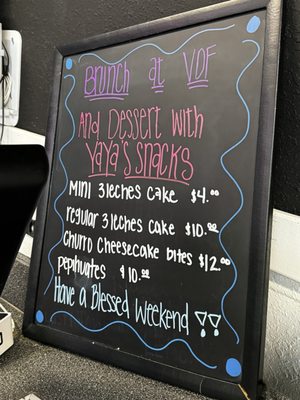 Brunch at VDF
And Dessert with
YaYa's Snacks
mini 3leches cake $4.00
regular 3leches cake $10.00
churro cheesecake bites $12.00
pepihuates $10.00
Have a Blessed Weekend!!